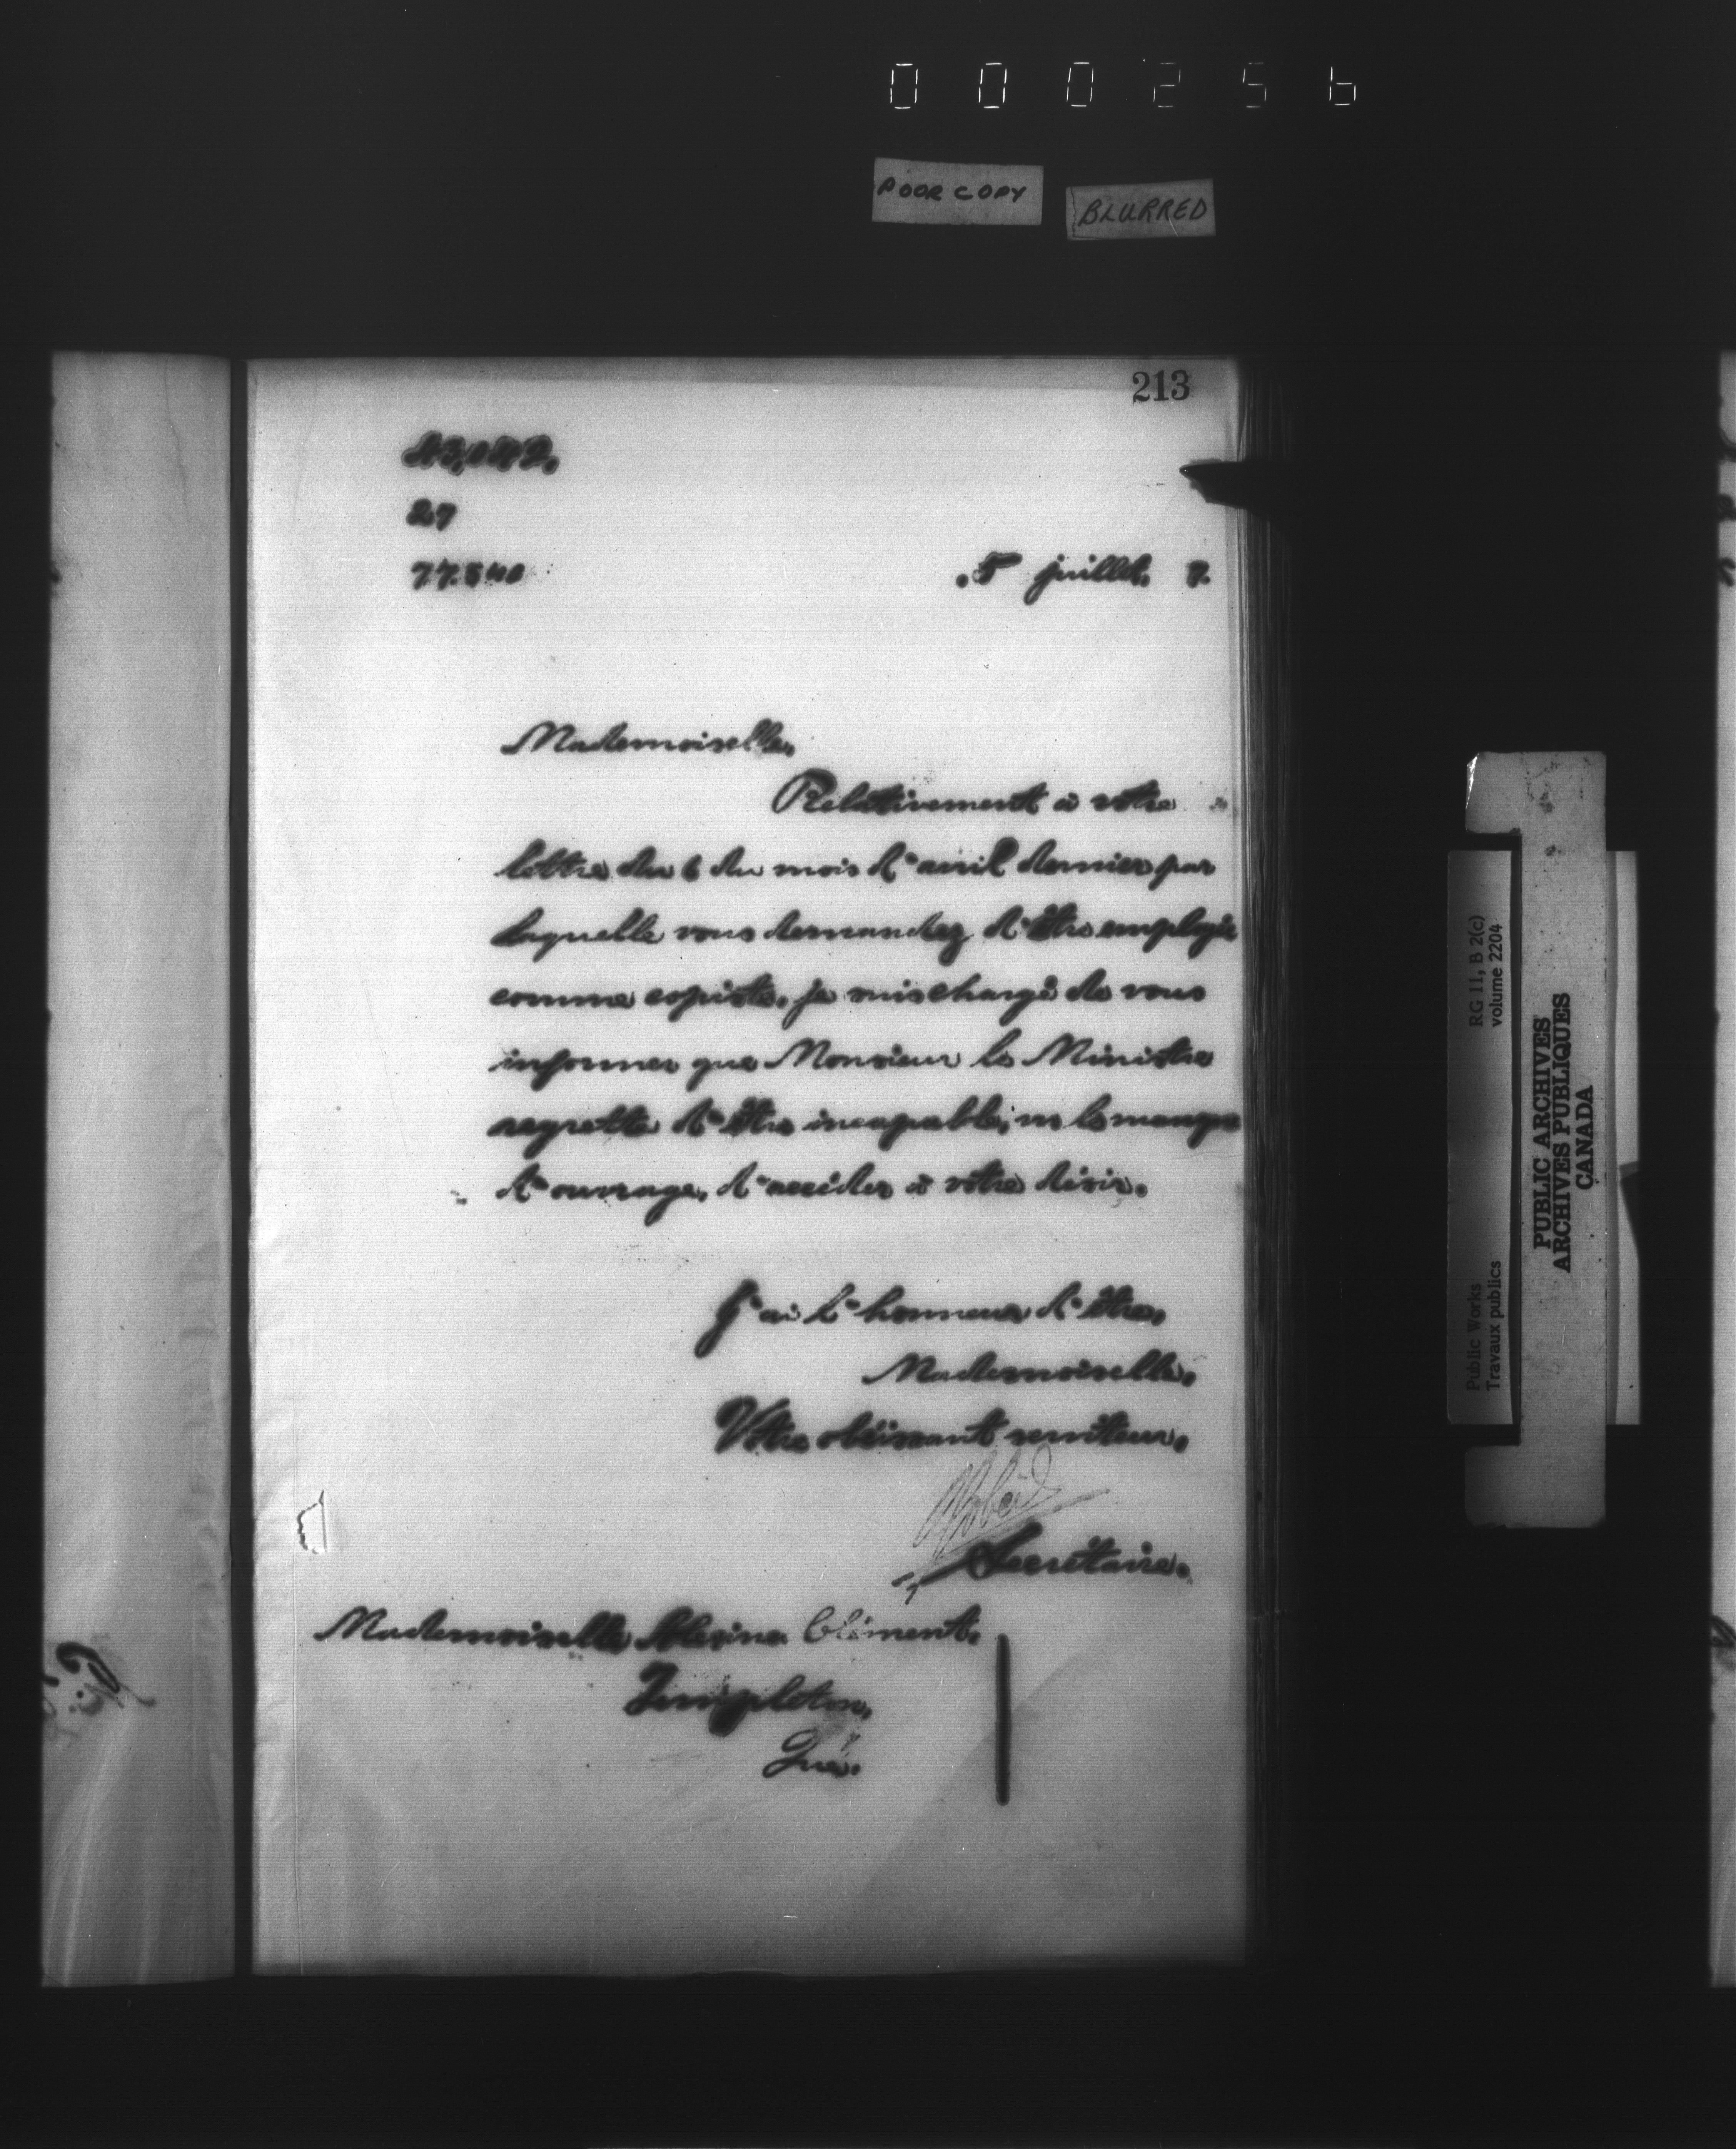 000256
POOR COPY
BLURRED
213
27
5 juillet. 7.
Mademoiselle,
Relativement à votre
lettre du 6 du mois d'avril dernier par
laquelle vous demandez d'être employée
comme copiste, je suis chargé de vous
informer que Monsieur le Ministre
regrette d'être incapable, vu le manque
d'ouvrage, d'accéder à votre désir.
J'ai l'honneur d'être,
Mademoiselle,
Votre obéissant serviteur,
Secrétaire.
Mademoiselle Clément,
Templeton,
Qué.
Public Works
Travaux publics
RG 11, B 2(c)
volume 2204
PUBLIC ARCHIVES
ARCHIVES PUBLIQUES
CANADA